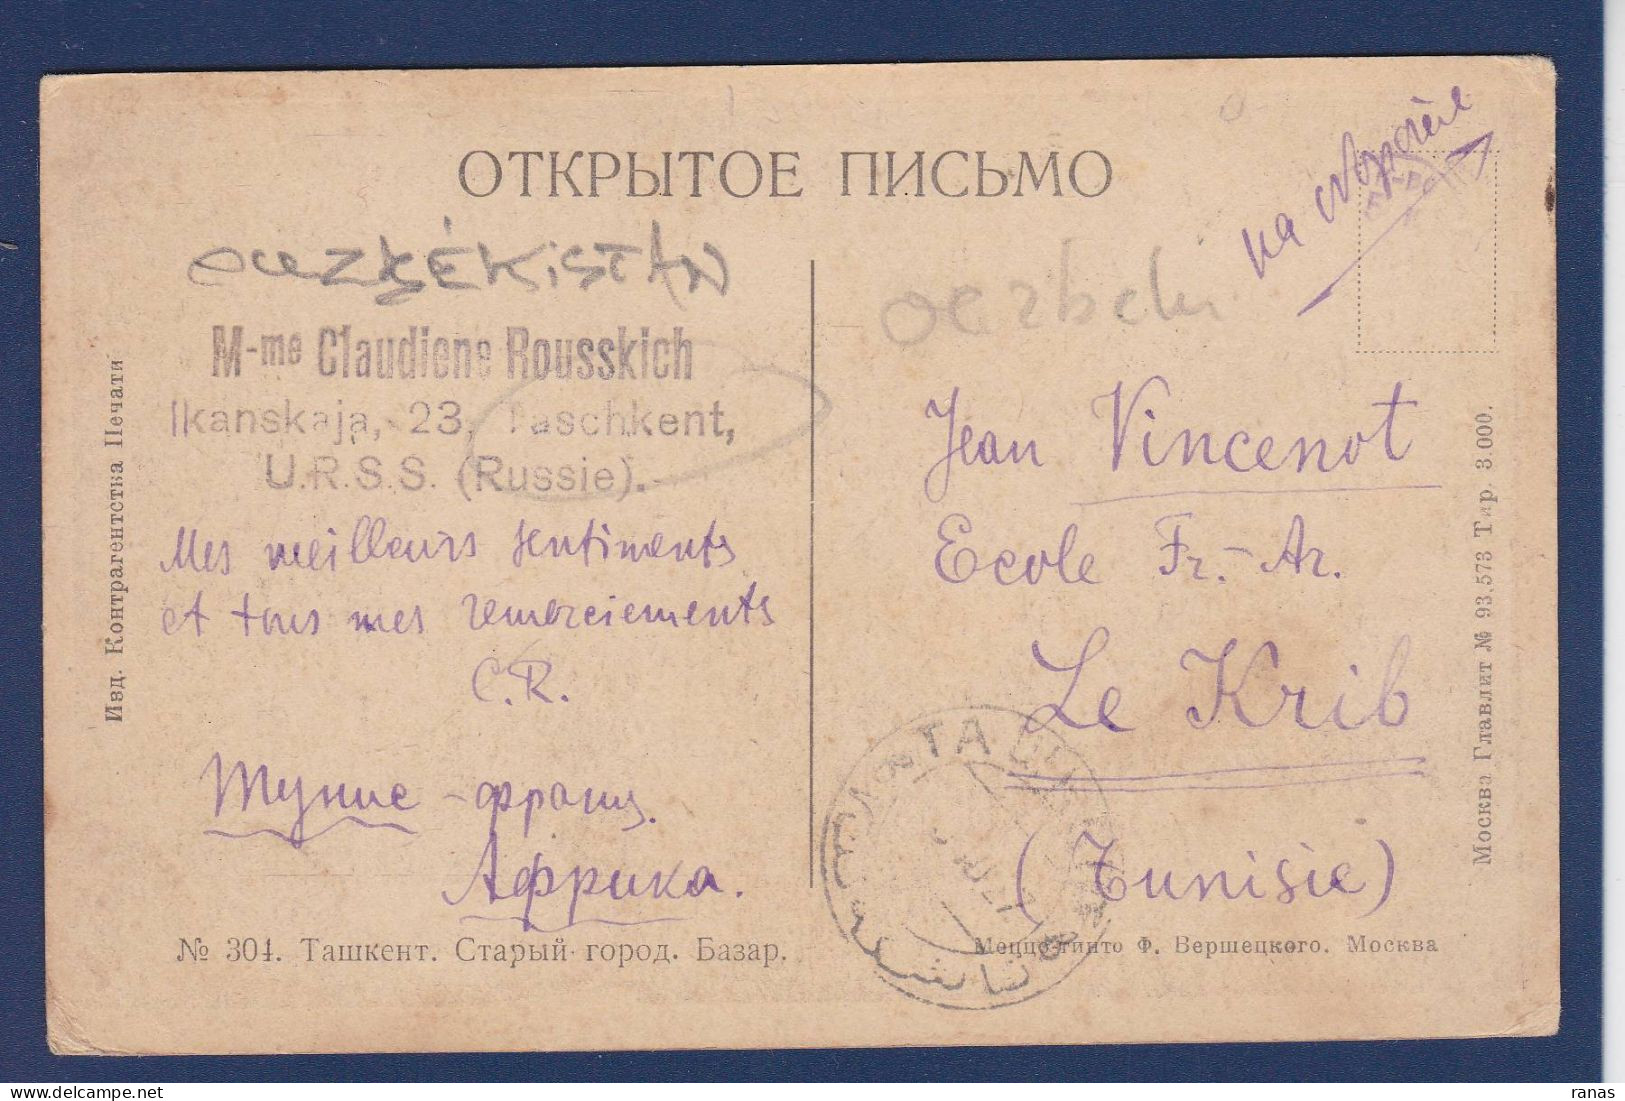 ОТКРЫТОЕ ПИСЬМО
на
OUZBÉKISTAN
M-me Claudiene Rousskich
Ikanskaja, 23, Taschkent,
U.R.S.S. (Russie).
Mes meilleurs sentiments
et tous mes remerciements
C.R.
Тунис - франц.
Африка.
№ 304. Ташкент. Старый город. Базар.
Изд. Контрагентства Печати
Jean Vincenot
Ecole Fr.-Ar.
Le Krib
(Tunisie)
Меццо-тинто Ф. Вершецкого. Москва
Москва Главлит № 93.573 Тир. 3.000.
ranas